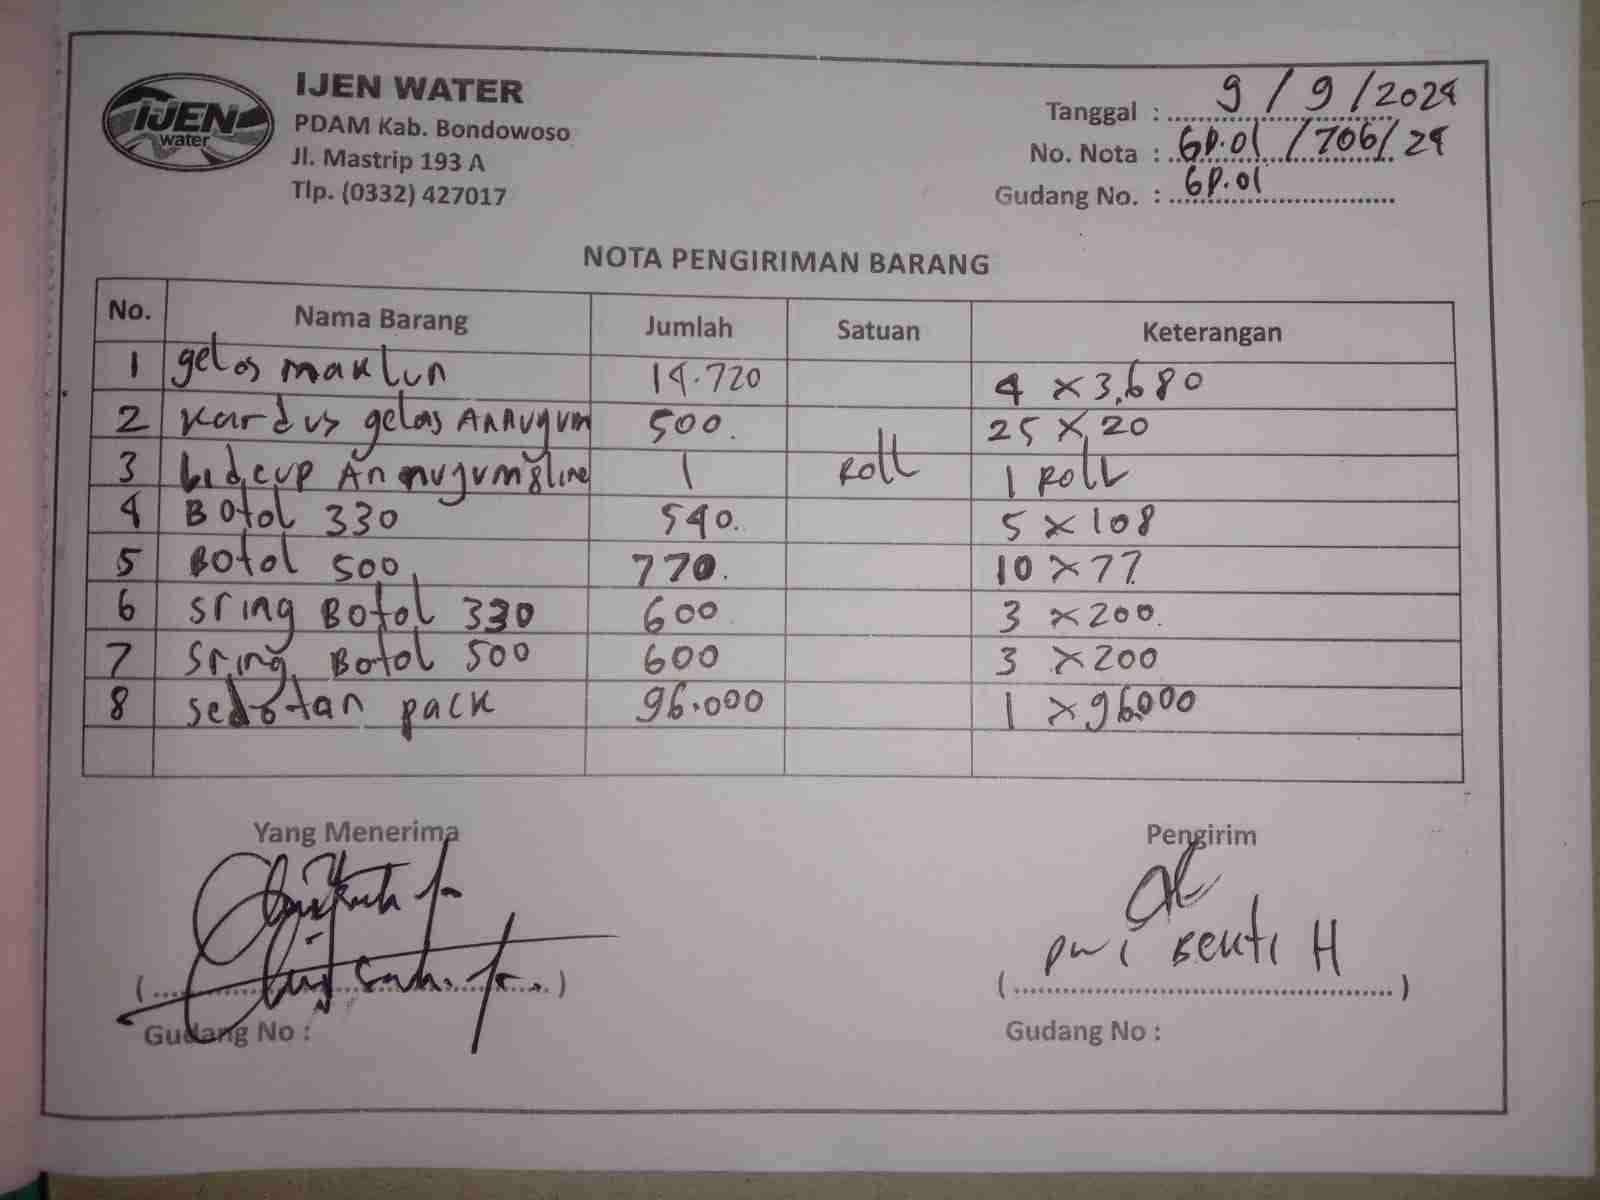 IJEN WATER
PDAM Kab. Bondowoso
Jl. Mastrip 193 A
Tlp. (0332) 427017
IJEN
water
Tanggal : 9 / 9 / 2024
No. Nota : GP.01 / 706 / 24
Gudang No. : GP.01
NOTA PENGIRIMAN BARANG
No. Nama Barang Jumlah Satuan Keterangan
1 gelas maklun 14.720 4 x 3.680
2 kardus gelas Annugum 500. 25 x 20
3 Lidcup Annugum 8line 1 Roll 1 Roll
4 Botol 330 540. 5 x 108
5 Botol 500 770. 10 x 77
6 sring Botol 330 600 3 x 200.
7 sring Botol 500 600 3 x 200
8 sedotan pack 96.000 1 x 96.000
Yang Menerima Pengirim
( ) ( Dwi Bekti H )
Gudang No : Gudang No :